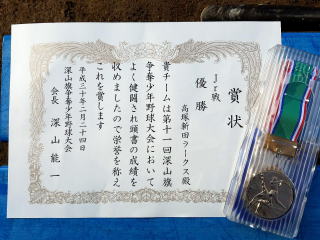 賞状
Jr戦
優勝
高塚新田ラークス殿
貴チームは第十一回深山旗
争奪少年野球大会において
よく健闘され頭書の成績を
収めましたので栄誉を称え
これを賞します
平成三十年二月二十四日
深山旗争奪少年野球大会
会長 深山能一